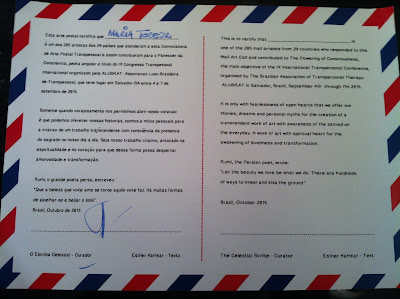 Este arte postal certifica que MARIA TEREZA
é um dos 205 artistas dos 29 países que atenderam a esta Convocatória
de Arte Postal Transpessoal e assim contribuíram para o Florescer da
Consciência, pedra angular e título do IV Congresso Transpessoal
Internacional organizado pela ALUBRAT- Associacao Luso-Brasileira
de Transpessoal, que teve lugar em Salvador-BA entre 4 e 7 de
setembro de 2015.
Somente quando corajosamente nos permitimos abrir nosso coração
é que podemos oferecer nossas histórias, sonhos e mitos pessoais para
a criacao de um trabalho transcendente com consciência da presenca
do sagrado no nosso dia a dia. Seja nosso trabalho criativo, ancorado na
espiritualidade e no coração para que dessa forma possa despertar
amorosidade e transformação.
Rumi, o grande poeta persa, escreveu:
"Que a beleza que voce ama se torne aquilo que voce faz. Ha muitas formas
de ajoelhar-se e beijar o solo".
Brasil, Outubro de 2015
O Escriba Celestial - Curador
Escher Kamkar - Texto
This is to certify that
one of the 205 mail artists from 29 countries who responded to this
Mail Art Call and contributed to The Flowering of Consciousness,
the main objective of the IV International Transpersonal Conference,
organized by The Brazilian Association of Transpersonal Therapy-
ALUBRAT in Salvador, Brazil, September 4th through 7th 2015.
It is only with fearlessness of open hearts that we offer our
stories, dreams and personal myths for the creation of a
transcendent work of art with awareness of the sacred in
the everyday. A work of art with spiritual heart for the
awakening of loveliness and transformation.
Rumi, the Persian poet, wrote:
"Let the beauty we love be what we do. There are hundreds
of ways to kneel and kiss the ground."
Brazil, October 2015
The Celestial Scribe - Curator
Escher Kamkar - Text